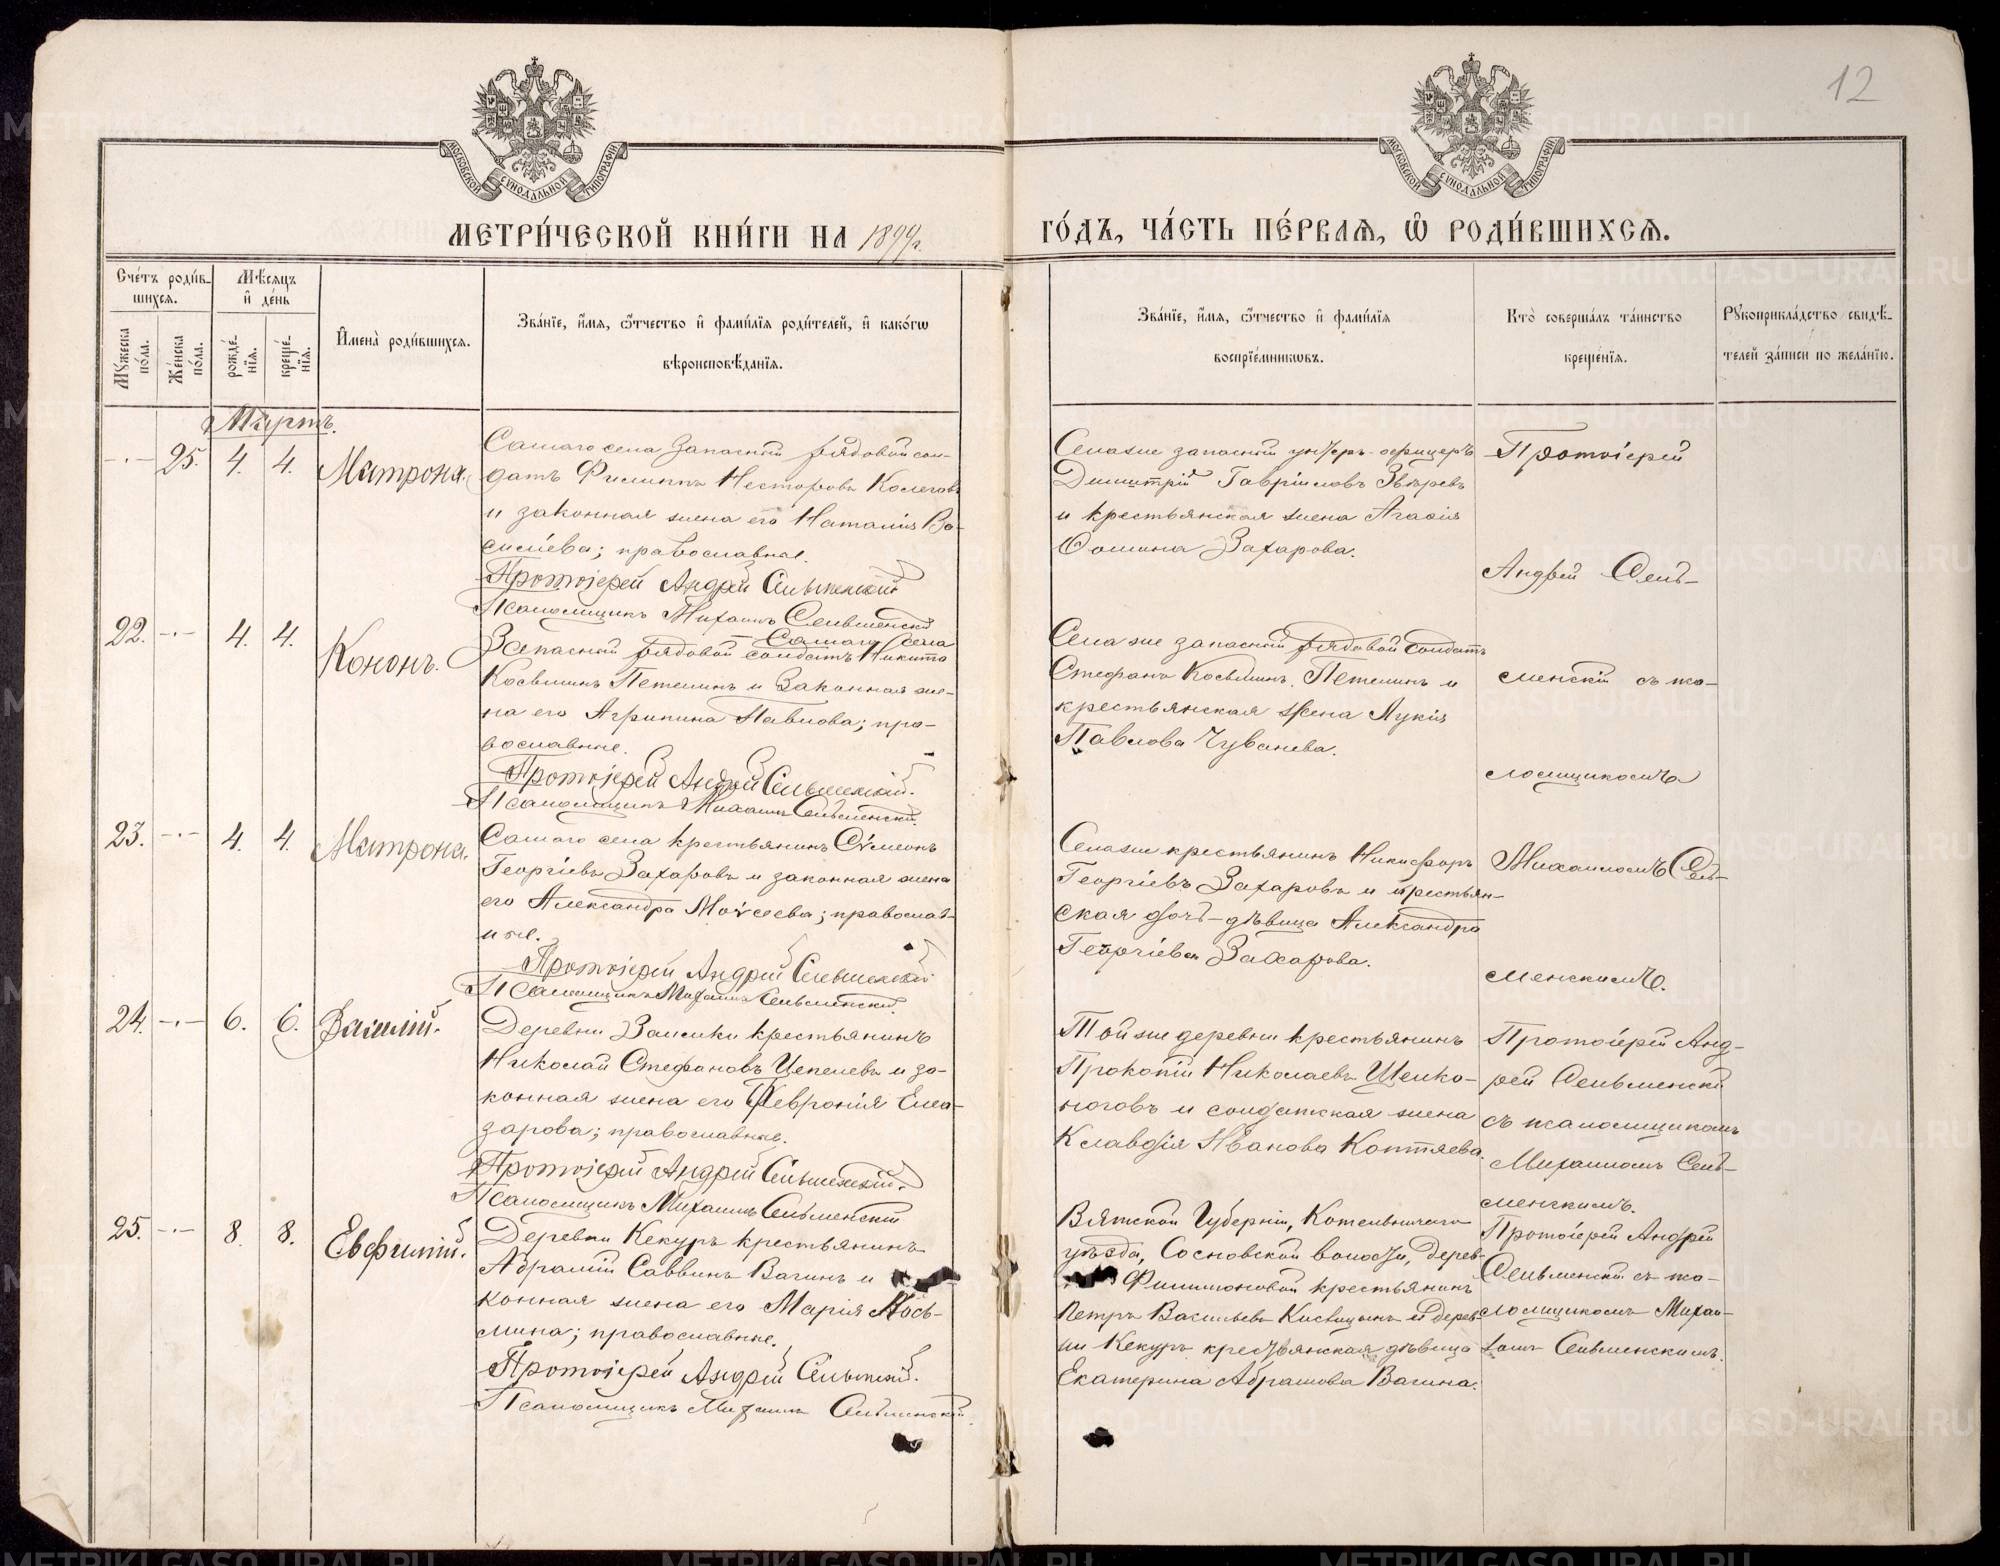 12
МОСКОВСКОЙ СѴНОДАЛЬНОЙ ТИПОГРАФІИ
МОСКОВСКОЙ СѴНОДАЛЬНОЙ ТИПОГРАФІИ
МЕТРИ́ЧЕСКОЙ КНИ́ГИ НА 1899г.
ГО́ДЪ, ЧА́СТЬ ПЕ́РВАѦ, Ѡ҆ РОДИ́ВШИХСѦ.
Сче́тъ роди́в-
шихсѧ.
Мѣ́сѧцъ
и҆ де́нь
Мꙋ́жеска
по́ла.
Же́нска
по́ла.
рожде́-
нїѧ.
креще́-
нїѧ.
И҆мена̀ роди́вшихсѧ.
Зва́нїе, и҆́мѧ, ѻ҆́тчество и҆ фами́лїѧ роди́телей, и҆ како́гѡ
вѣроисповѣ́данїѧ.
Зва́нїе, и҆́мѧ, ѻ҆́тчество и҆ фами́лїѧ
воспрїе́мникѡвъ.
Кто̀ соверша́лъ та́инство
креще́нїѧ.
Рꙋкоприкла́дство свидѣ́-
телей за́писи по жела́нїю.
Мартъ.
-·- 25. 4. 4. Матрона.
Самаго села запасный рядовой сол-
датъ Филиппъ Несторовъ Колеговъ
и законная жена его Наталія Ва-
силіева; православные.
Протоіерей Андрей Сельменскій
Псаломщикъ Михаилъ Сельменскій
Села же запасный унтеръ-офицеръ
Димитрій Гавріиловъ Звѣревъ
и крестьянская жена Агафія
Фомина Захарова.
Протоіерей
Андрей Сель-
22. -·- 4. 4. Кононъ.
Самаго села
Запасный рядовой солдатъ Никита
Косьминъ Петелинъ и законная же-
на его Агрипина Павлова; пра-
вославные.
Протоіерей Андрей Сельменскій.
Псаломщикъ Михаилъ Сельменскій.
Села же запасный рядовой солдатъ
Стефанъ Косьминъ Петелинъ и
крестьянская жена Лукія
Павлова Чувакева.
менскій съ пса-
ломщикомъ
23. -·- 4. 4. Матрона.
Самаго села крестьянинъ Сѵмеонъ
Георгіевъ Захаровъ и законная жена
его Александра Моѵсеева; православ-
ные.
Протоіерей Андрей Сельменскій
Псаломщикъ Михаилъ Сельменскій.
Села же крестьянинъ Никифоръ
Георгіевъ Захаровъ и крестьян-
ская дочь-дѣвица Александра
Георгіева Захарова.
Михаиломъ Сель-
менскимъ.
24. -·- 6. 6. Василій.
Деревни Заимки крестьянинъ
Николай Стефановъ Цепелевъ и за-
конная жена его Февронія Елеа-
зарова; православные.
Протоіерей Андрей Сельменскій.
Псаломщикъ Михаилъ Сельменскій
Той же деревни крестьянинъ
Прокопій Николаевъ Щелко-
ноговъ и солдатская жена
Клавдія Иванова Коптяева.
Протоіерей Анд-
рей Сельменскій
съ псаломщикомъ
Михаиломъ Сель-
менскимъ.
25. -·- 8. 8. Евфимій.
Деревни Кекуръ крестьянинъ
Абрамій Саввинъ Вагинъ и
конная жена его Марія Кось-
мина; православные.
Протоіерей Андрей Сельменскій.
Псаломщикъ Михаилъ Сельменскій.
Вятской Губерніи, Котельничего
уѣзда, Сосновской волости, дерев-
Филимоновой крестьянинъ
Петръ Васильевъ Кисвицынъ и дерев-
ни Кекуръ крестьянская дѣвица
Екатерина Абрамова Вагина.
Протоіерей Андрей
Сельменскій съ пса-
ломщикомъ Михаи-
ломъ Сельменскимъ.
METRIKI.GASO-URAL.RU